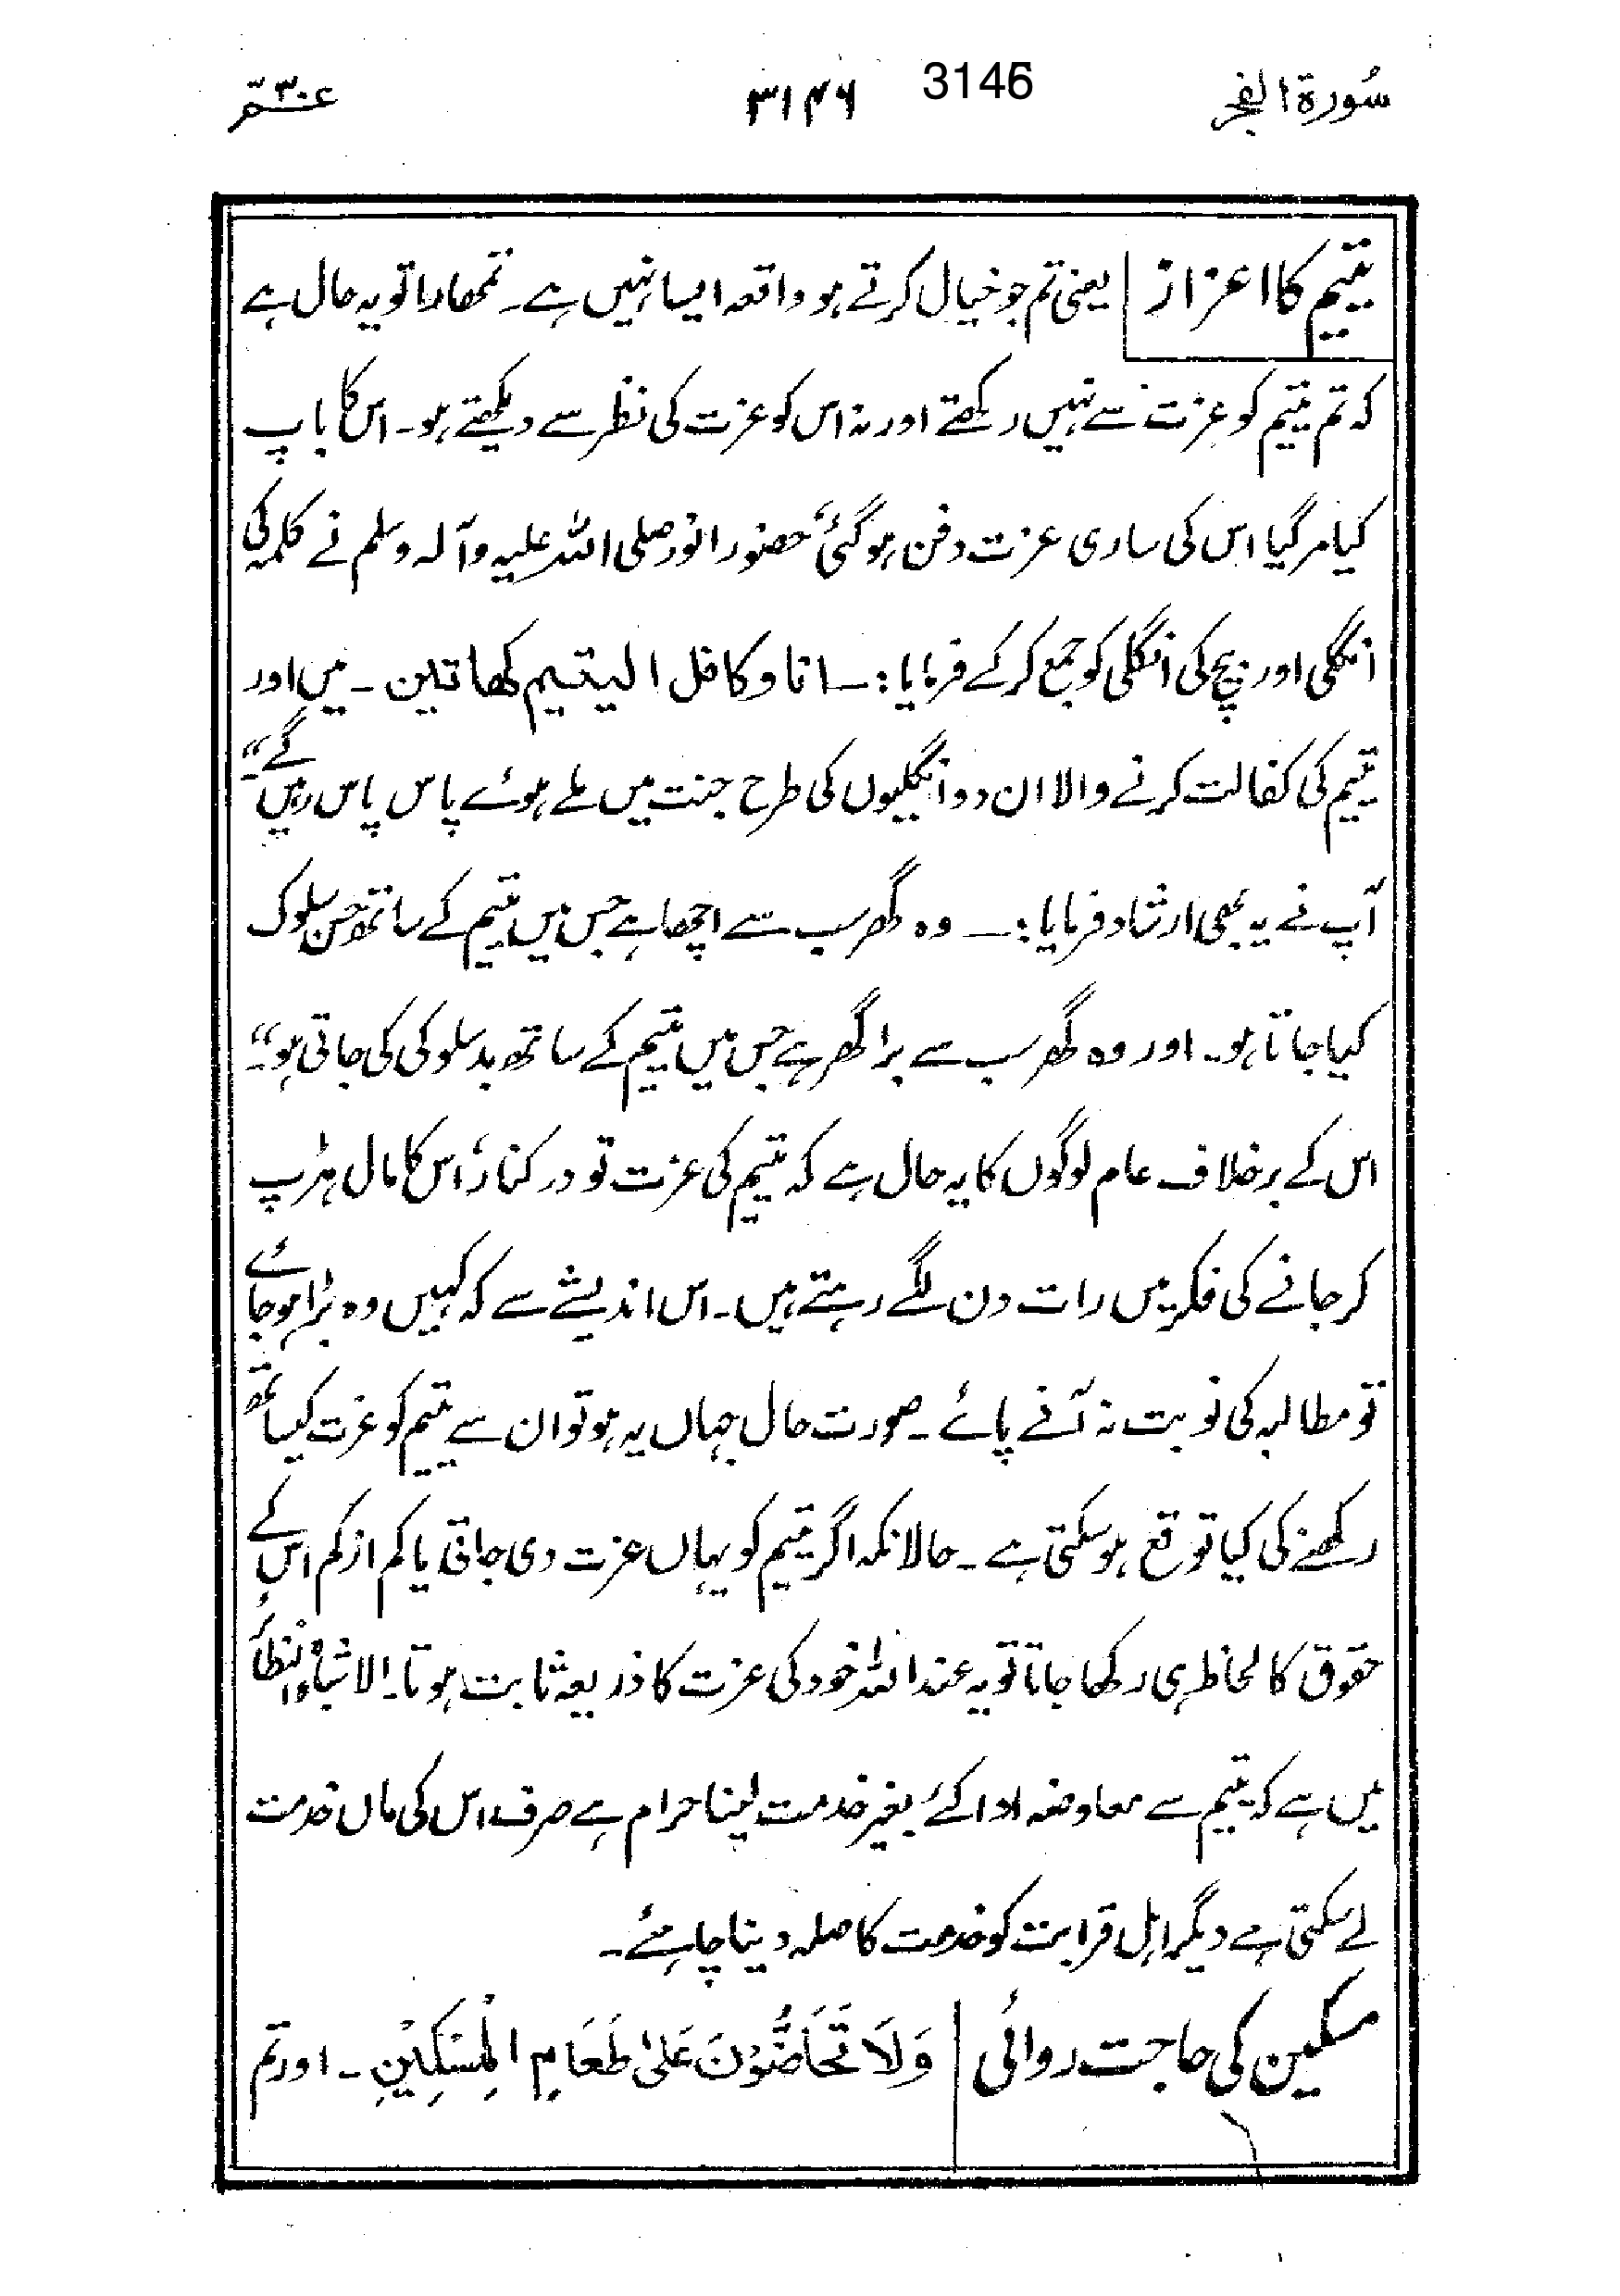 سُورۃ الفجر ۳۱۴۶ 3146 عۃ۳۰
یتیم کا اعزاز یعنی تم جو خیال کرتے ہو واقعہ ایسا نہیں ہے۔ تمھارا تو یہ حال ہے
کہ تم یتیم کو عزت سے نہیں رکھتے اور نہ اس کو عزت کی نظر سے دیکھتے ہو۔ اس کا باپ
کیا مر گیا اس کی ساری عزت دفن ہو گئی، حضور انور صلی اللہ علیہ وآلہ وسلم نے کلمہ کی
انگلی اور بیچ کی انگلی کو جمع کر کے فرمایا :۔ انا وکافل الیتیم کھاتین ۔ میں اور
یتیم کی کفالت کرنے والا ان دو انگلیوں کی طرح جنت میں ملے ہوئے پاس پاس رہیں گے"۔
آپ نے یہ بھی ارشاد فرمایا :۔ وہ گھر سب سے اچھا ہے جس میں یتیم کے ساتھ حسن سلوک
کیا جاتا ہو۔ اور وہ گھر سب سے برا گھر ہے جس میں یتیم کے ساتھ بد سلوکی کی جاتی ہو"۔
اس کے برخلاف عام لوگوں کا یہ حال ہے کہ یتیم کی عزت تو درکنار، اس کا مال ہڑپ
کر جانے کی فکر میں رات دن لگے رہتے ہیں۔ اس اندیشے سے کہ کہیں وہ بڑا ہو جائے
تو مطالبہ کی نوبت نہ آنے پائے ۔ صورت حال جہاں یہ ہو تو ان سے یتیم کو عزت کیساتھ
رکھنے کی کیا توقع ہو سکتی ہے ۔ حالانکہ اگر یتیم کو یہاں عزت دی جاتی یا کم از کم اس کے
حقوق کا لحاظ ہی رکھا جاتا تو یہ عند اللہ خود کی عزت کا ذریعہ ثابت ہوتا۔ الاشباہ والنظائر
میں ہے کہ یتیم سے معاوضہ ادا کئے بغیر خدمت لینا حرام ہے صرف اس کی ماں خدمت
لے سکتی ہے دیگر اہل قرابت کو خدمت کا صلہ دینا چاہئے ۔
مسکین کی حاجت روائی وَلَا تَحَاضُّوْنَ عَلٰی طَعَامِ الْمِسْکِیْنِ ۔ اور تم